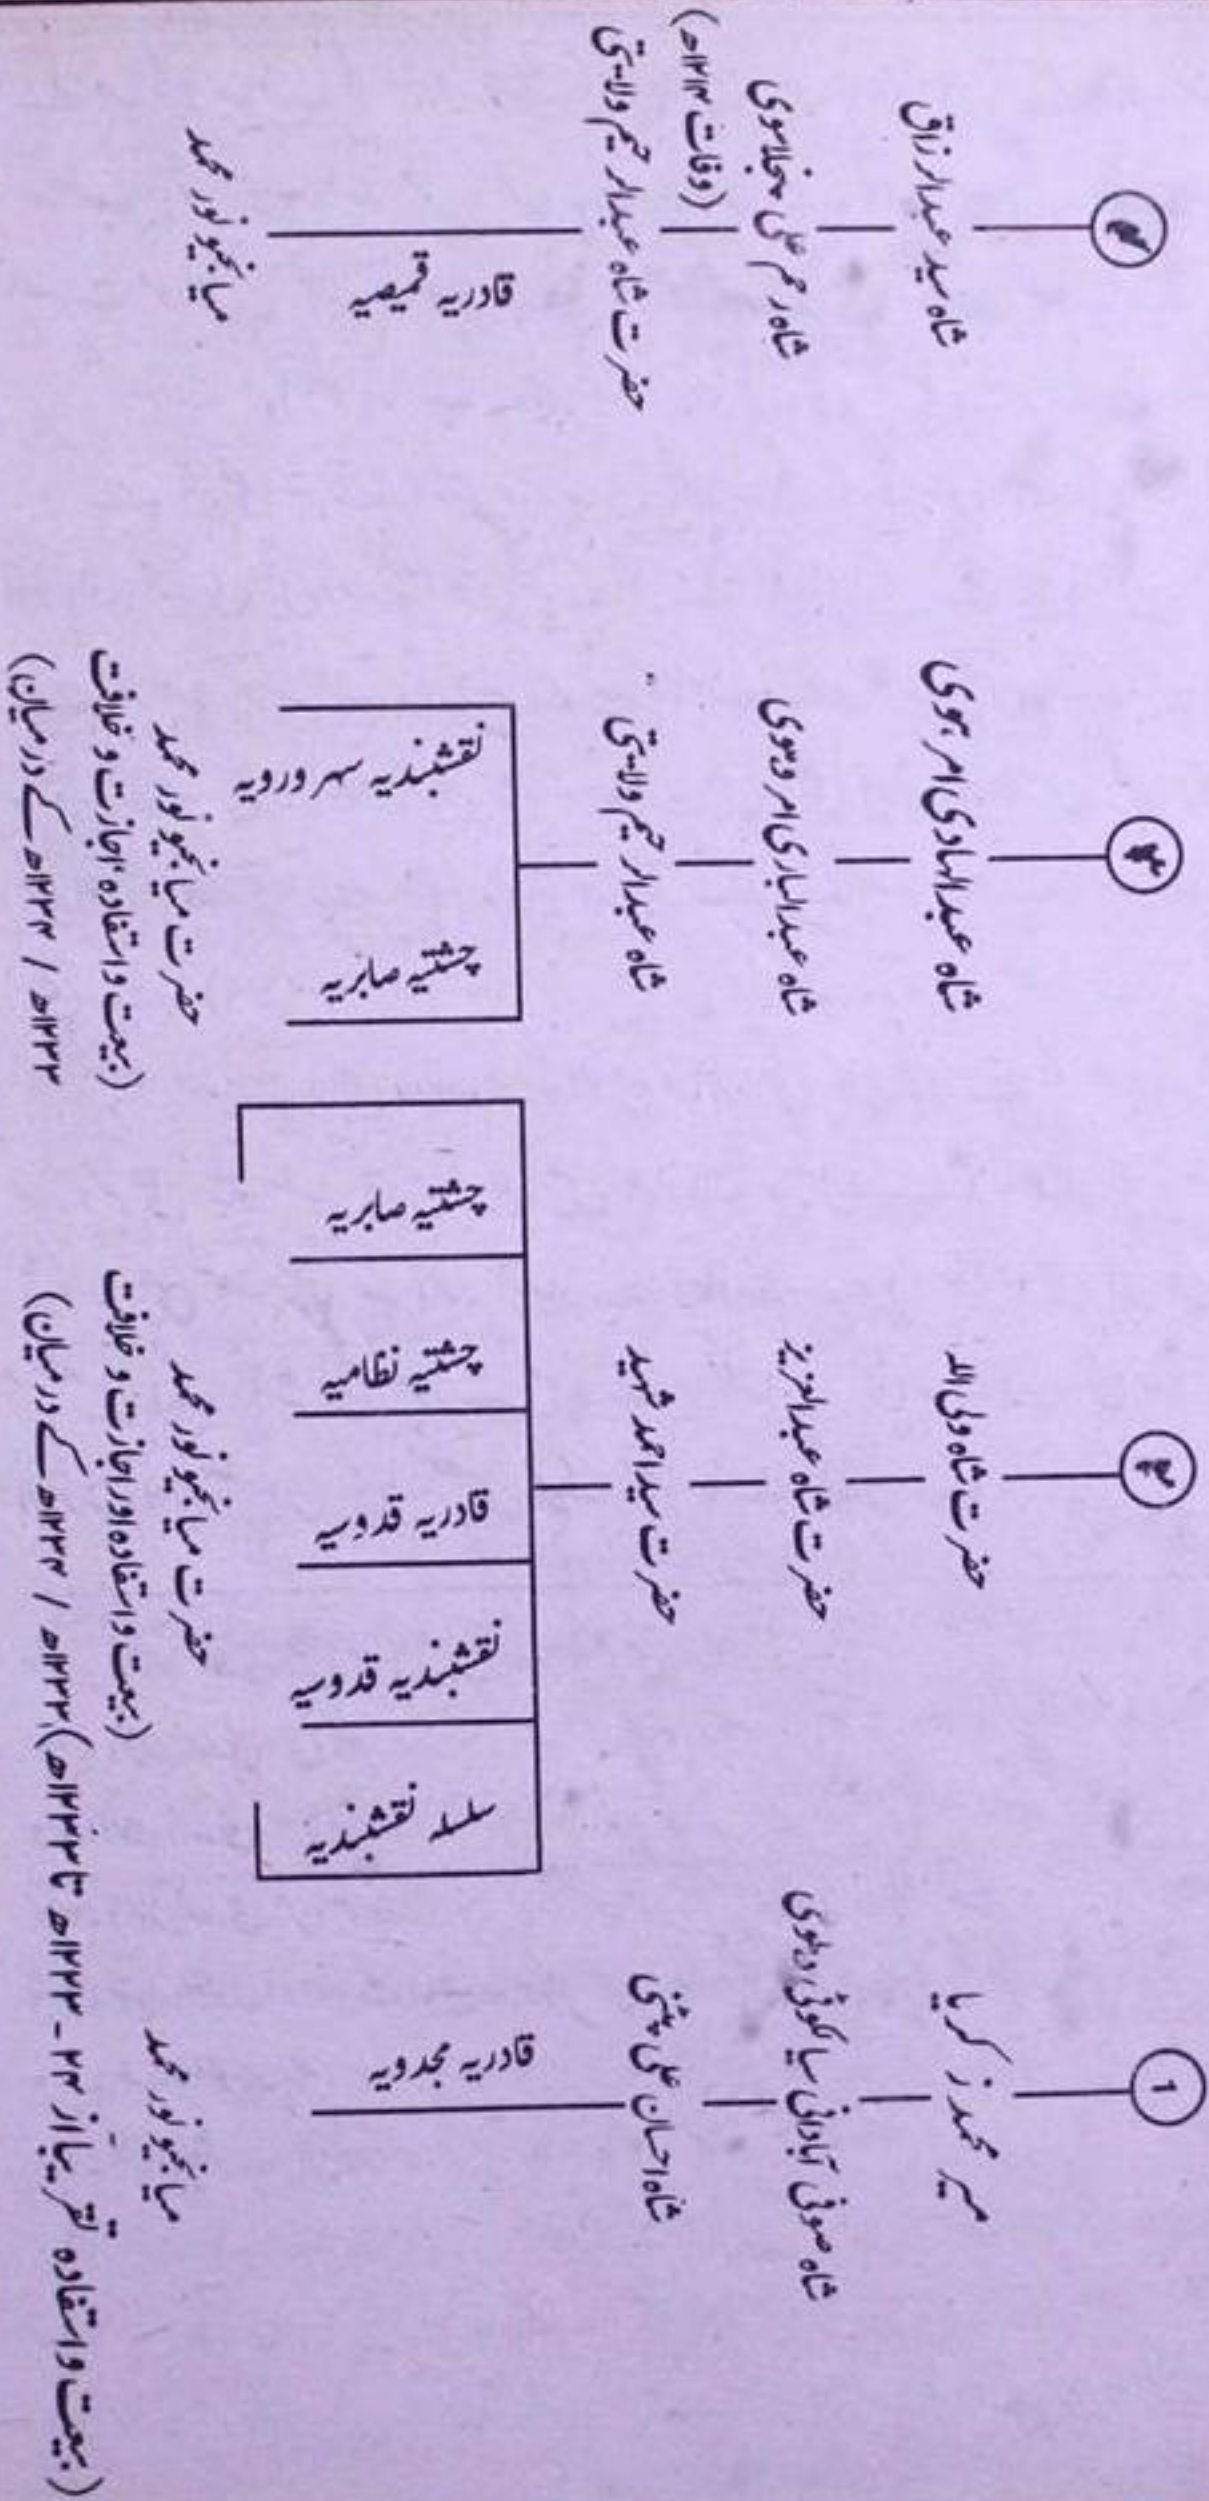 ۱
میر محمد زکریا
شاہ صوفی آبادانی سیالکوٹی دہلوی
شاہ احسان علی پٹنی
قادریہ مجددیہ
میانجیو نور محمد
(بیعت و استفادہ تقریباً از ۲۳ - ۱۲۲۲ھ تا ۱۲۳۲ھ)
۲
حضرت شاہ ولی اللہ
حضرت شاہ عبدالعزیز
حضرت سید احمد شہید
سلسلہ نقشبندیہ
نقشبندیہ قدوسیہ
قادریہ قدوسیہ
چشتیہ نظامیہ
چشتیہ صابریہ
حضرت میانجیو نور محمد
(بیعت و استفادہ اور اجازت و خلافت
۱۲۳۳ھ / ۱۲۳۴ھ کے درمیان)
۳
شاہ عبدالہادی امروہوی
شاہ عبدالباری امروہوی
شاہ عبدالرحیم ولایتی
چشتیہ صابریہ
نقشبندیہ سہروردیہ
حضرت میانجیو نور محمد
(بیعت و استفادہ، اجازت و خلافت
۱۲۳۳ھ / ۱۲۳۴ھ کے درمیان)
۴
شاہ سید عبدالرزاق
شاہ رحم علی پنجلاسوی
(وفات ۱۲۱۳ھ)
حضرت شاہ عبدالرحیم ولایتی
قادریہ قمیصیہ
میانجیو نور محمد